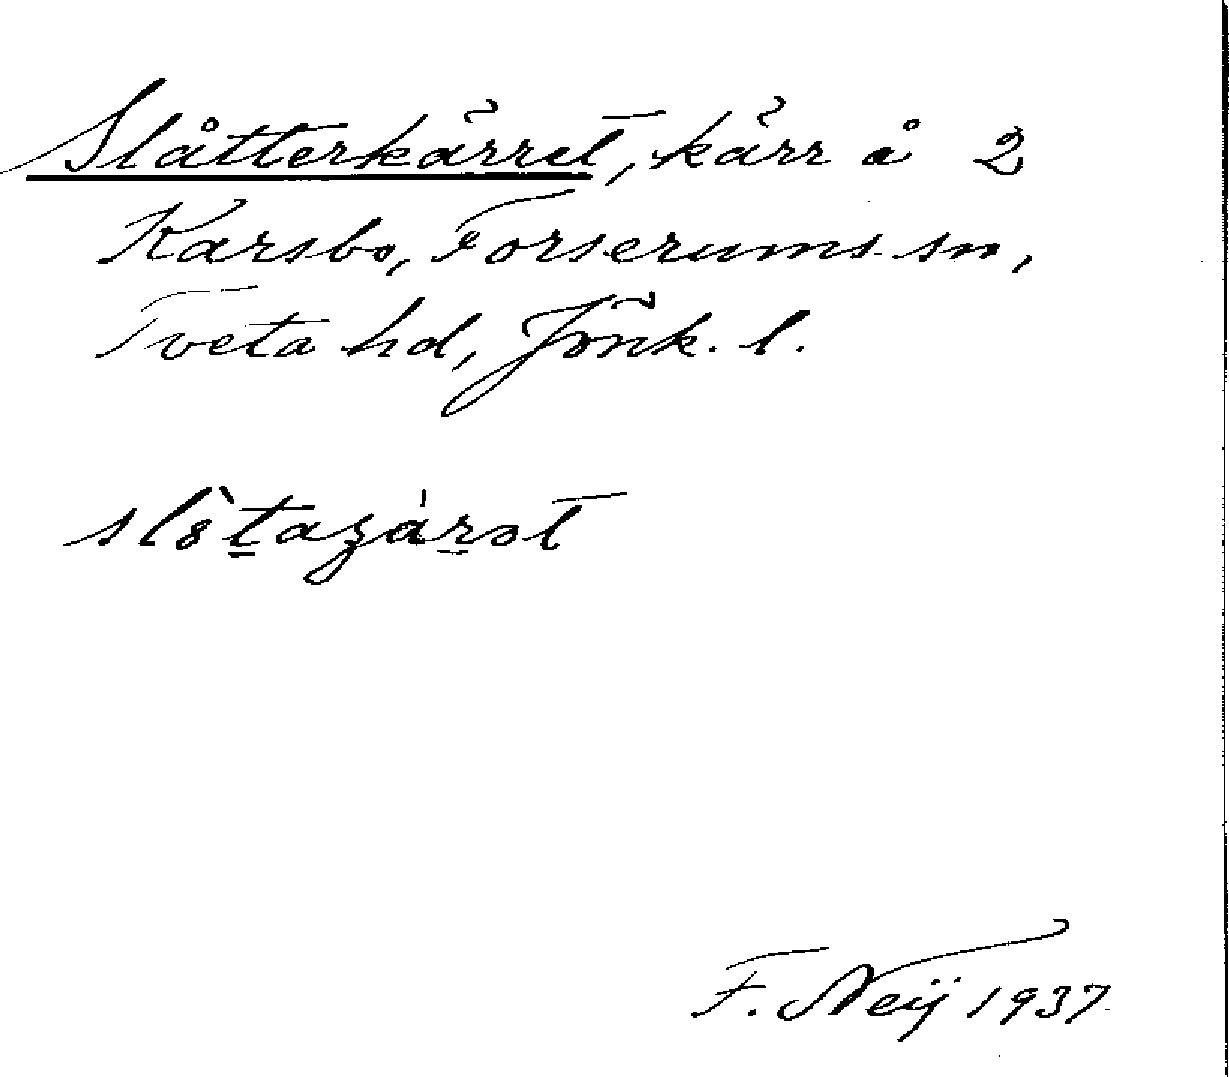 Slåtterkärret, kärr å 2
Karsbo, Forserums sn,
Tveta hd, Jönk. l.
F. Neij 1937